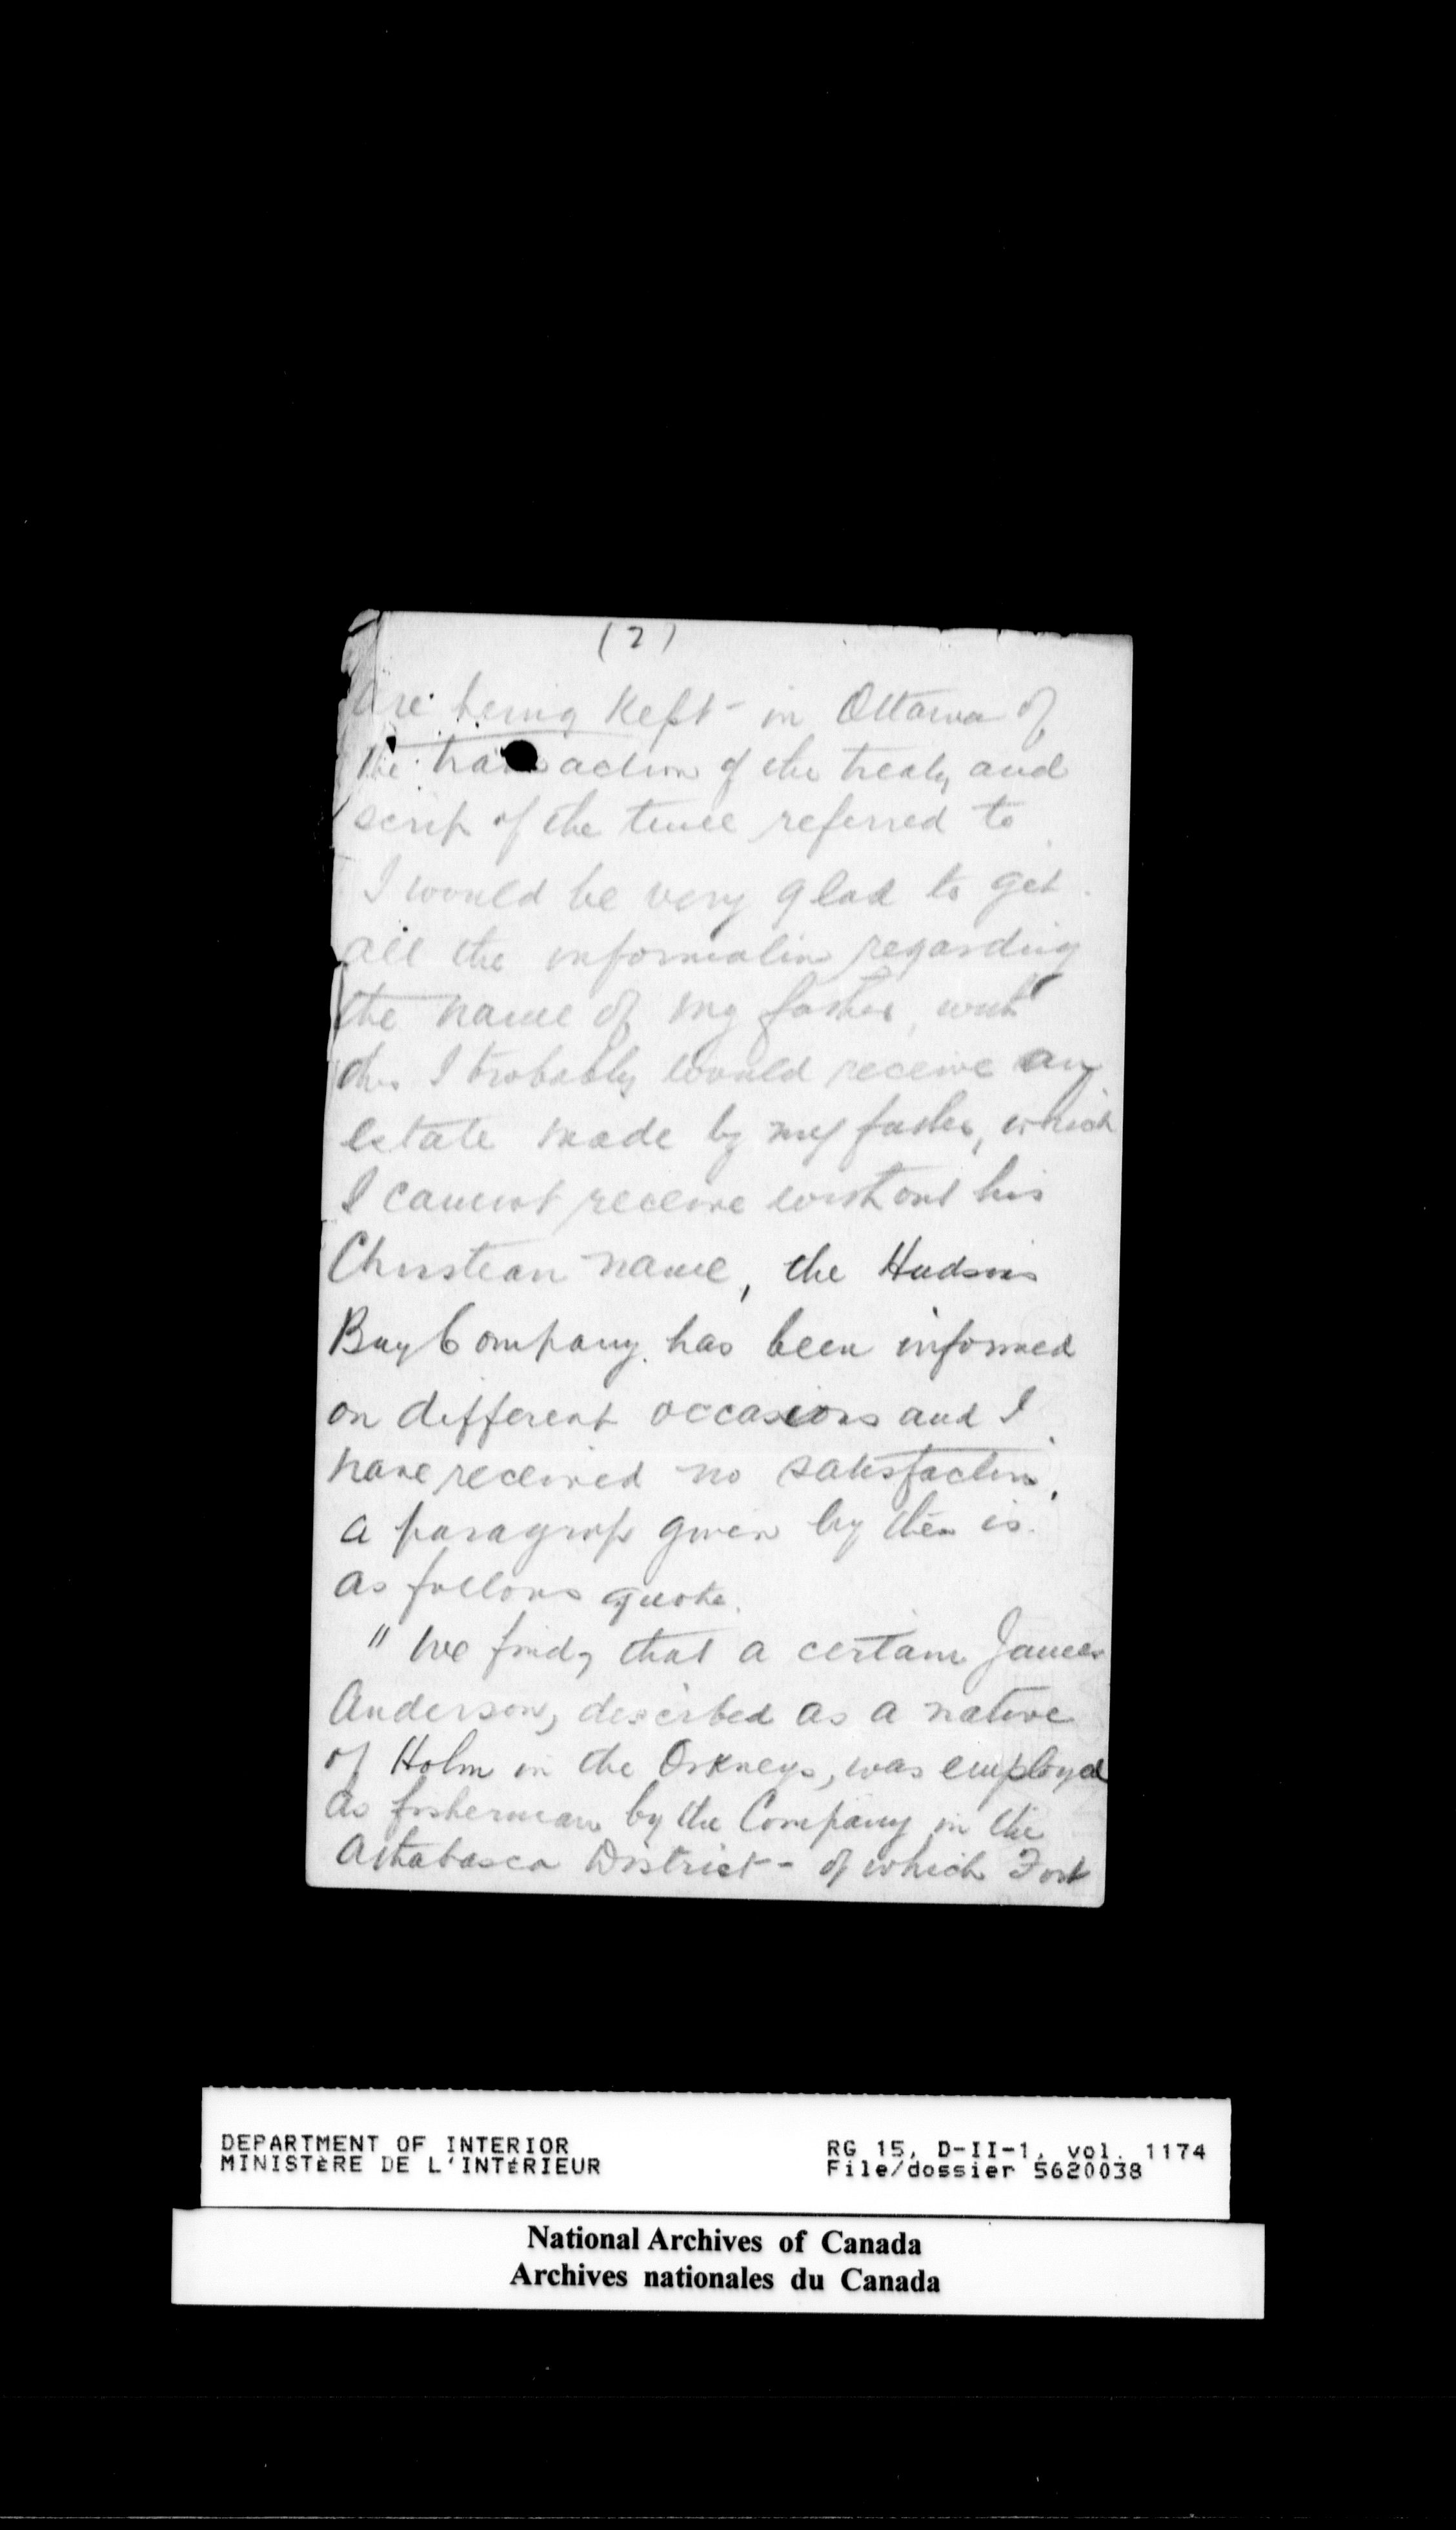 (2)
are being kept - in Ottawa of
the transaction of the treaty and
scrip of the time referred to
I would be very glad to get
all the information regarding
the name of my father, with
this I probably would receive any
estate made by my father, which
I cannot receive without his
Christian name, the Hudsons
Bay Company. has been informed
on different occasions and I
have received no satisfaction,
a paragrap given by them is
as follows quote.
" We find, that a certain James
Anderson, described as a native
of Holm in the Orkneys, was employed
as fisherman by the Company in the
Athabasca District - of which Fort
DEPARTMENT OF INTERIOR
MINISTÈRE DE L'INTÉRIEUR
RG 15, D-II-1, vol. 1174
File/dossier 5620038
National Archives of Canada
Archives nationales du Canada